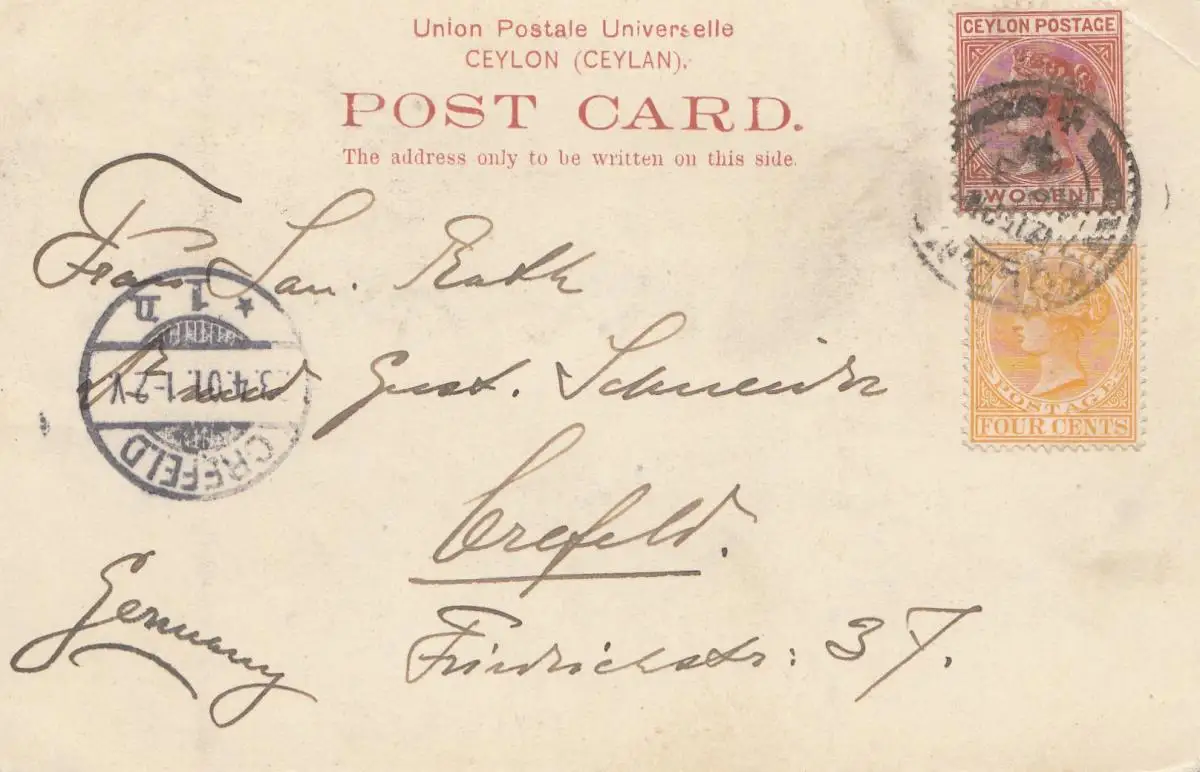 Union Postale Universelle
CEYLON (CEYLAN).
POST CARD.
The address only to be written on this side.
CEYLON POSTAGE
TWO CENTS
POSTAGE
FOUR CENTS
Frau San. Rath
Gust. Schneider
Crefeld.
Friedrichstr: 37.
Germany
CREFELD
3.4.01.1-2V
* 1 II